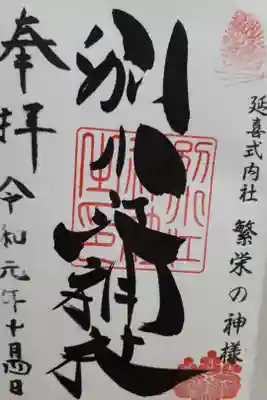 延喜式内社 繁栄の神様
別小江神社
奉拝
令和元年十月日